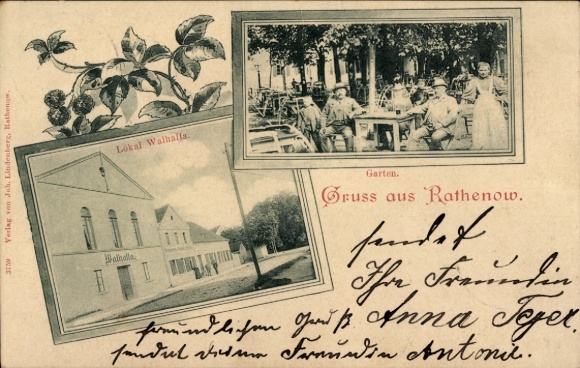 Lokal Walhalla.
Garten.
Gruss aus Rathenow.
Walhalla.
Verlag von Joh. Lindenberg, Rathenow.
3759
sendet
Ihre Freundin
freundlichen Gruß Anna
sendet deine Freundin